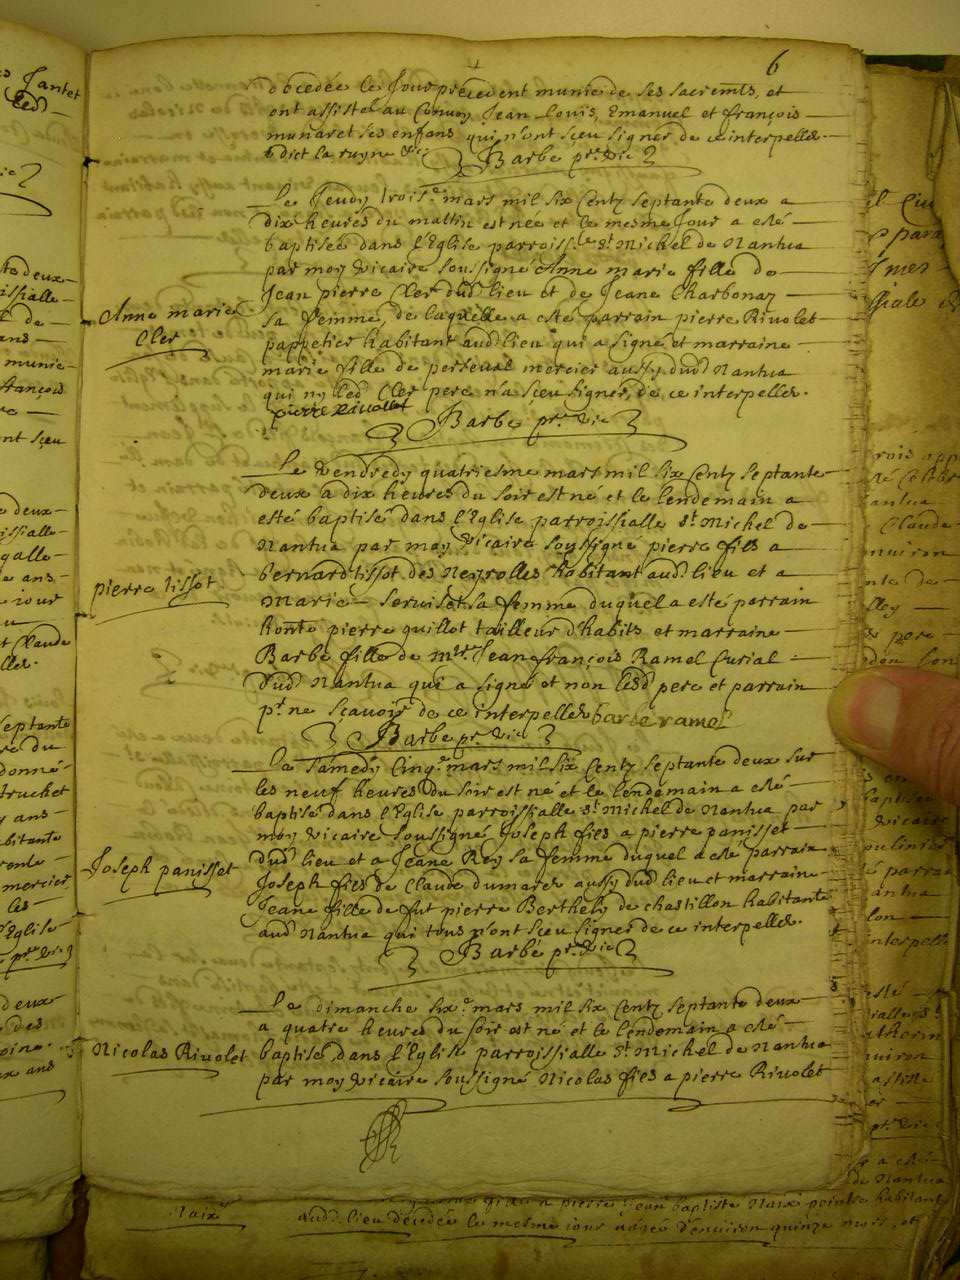 6
decedée le Jour precedent munie de ses sacremts, et
ont assisté au Convoy Jean Louis, Emanuel et françois
munaret ses enfans qui n'ont sçeu signer de ce interpellés
Barbe ptre vic
Le Jeudy troise mars mil six Centz septante deux a
dix heures du mattin est née et le mesme Jour a esté
baptisée dans l'Eglise parroisslle st Michel de Nantua
par moy vicaire soussigné Anne marie fille de
Jean pierre Cler dud lieu et de Jeane Charbonay
sa femme, de laquelle a esté parrain pierre Rivolet
pappetier habitant aud lieu qui a signé et marraine
marie fille de perseval mercier aussy dud Nantua
qui ny led Cler pere n'a sçeu signer, de ce interpellés
Anne marie
Cler
pierre Rivollet
Barbe ptre vic
Le vendredy quatriesme mars mil six Centz septante
deux a dix heures du soir est né et le lendemain a
esté baptisé dans l'Eglise parroissialle st Michel de
Nantua par moy vicaire soussigné pierre fils a
bernard tissot des Neyrolles habitant aud lieu et a
Marie servisetsa femme duquel a esté parrain
honte pierre quillot tailleur d'habits et marraine
Barbe fille de mtre Jean françois Ramel Curial
dud Nantua qui a signé et non lesd pere et parrain
pt ne sçavoir de ce interpellés barbe ramel
pierre tissot
Barbe ptre vic
Le samedy Cinqe mars mil six Centz septante deux sur
les neuf heures du soir est né et le lendemain a esté
baptisé dans l'Eglise parroissialle st Michel de Nantua par
moy vicaire soussigné Joseph fils a pierre panisset
dud lieu et a Jeane Rey sa femme duquel a esté parrain
Joseph fils de Claude dumarest aussy dud lieu et marraine
Jeane fille de fut pierre Berthely de chastillon habitante
aud Nantua qui tous n'ont sçeu signer de ce interpellés
Joseph panisset
Barbe ptre vic
Le dimanche sixe mars mil six Centz septante deux
a quatre heures du soir est né et le lendemain a esté
baptisé dans l'Eglise parroissialle st Michel de Nantua
par moy vicaire soussigné Nicolas fils a pierre Rivolet
Nicolas Rivolet